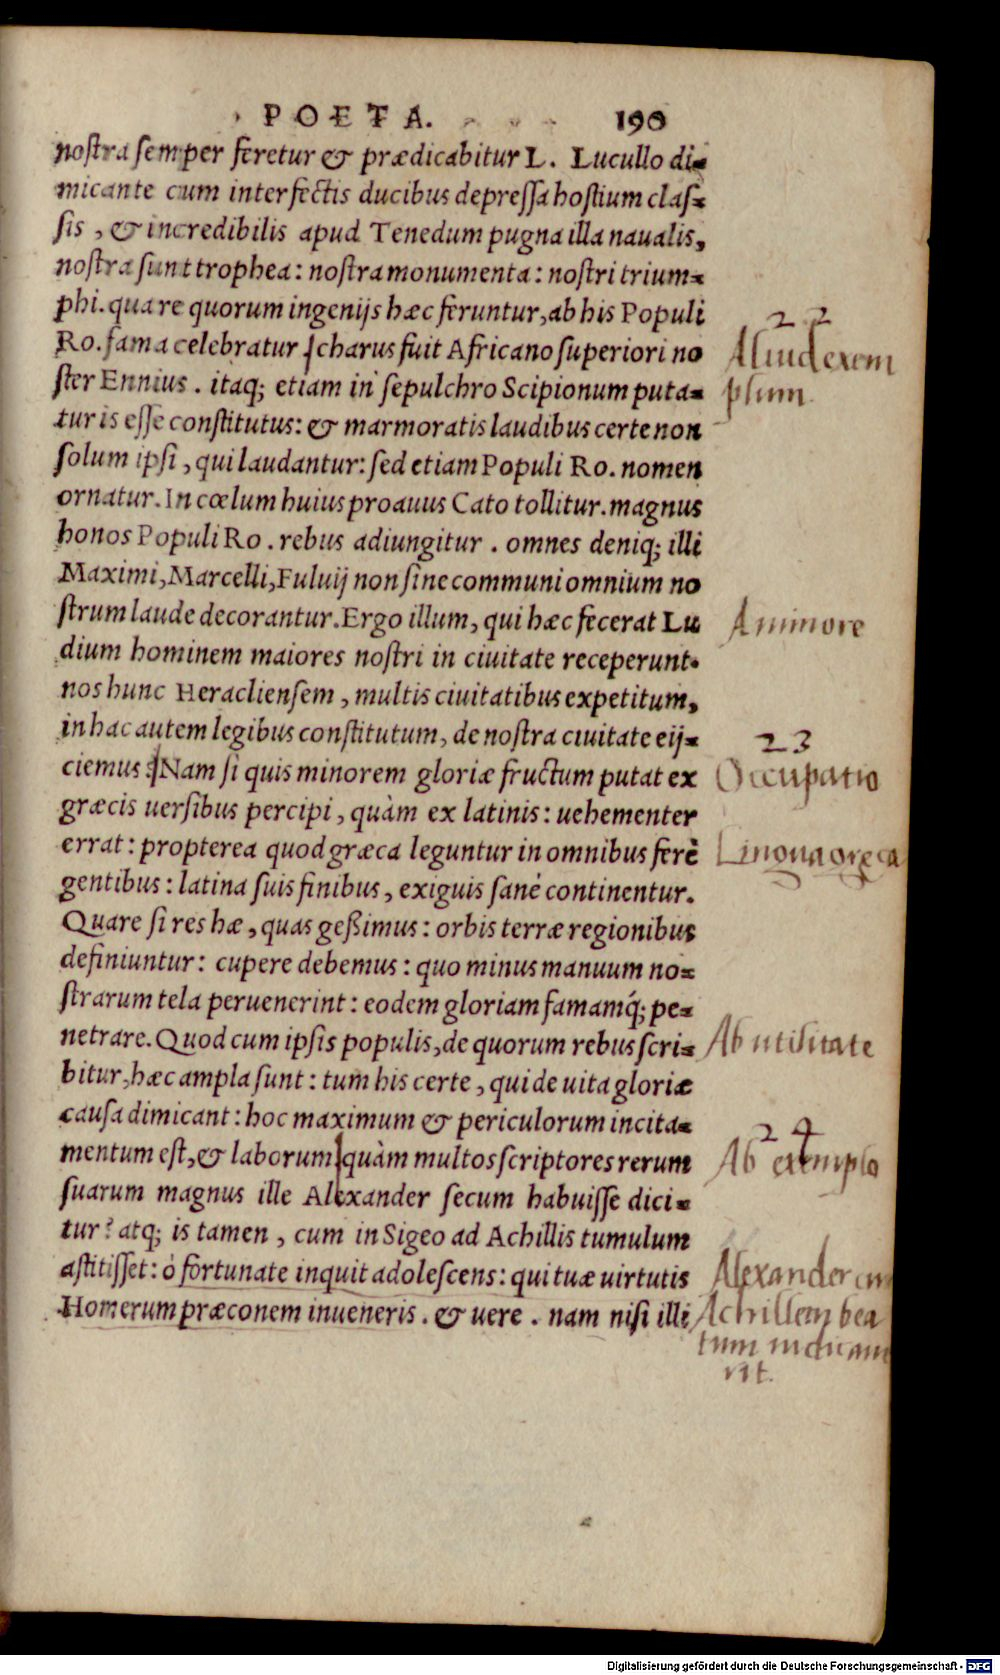 POETA. 190
nostra semper feretur & prædicabitur L. Lucullo di=
micante cum interfectis ducibus depressa hostium clas=
sis, & incredibilis apud Tenedum pugna illa naualis,
nostra sunt trophea: nostra monumenta: nostri trium=
phi. quare quorum ingenijs hæc feruntur, ab his Populi
Ro. fama celebratur charus fuit Africano superiori no
ster Ennius. itaq; etiam in sepulchro Scipionum puta=
tur is esse constitutus: & marmoratis laudibus certe non
solum ipsi, qui laudantur: sed etiam Populi Ro. nomen
ornatur. In cœlum huius proauus Cato tollitur. magnus
honos Populi Ro. rebus adiungitur. omnes deniq; illi
Maximi, Marcelli, Fuluij non sine communi omnium no
strum laude decorantur. Ergo illum, qui hæc fecerat Lu
dium hominem maiores nostri in ciuitate receperunt.
nos hunc Heracliensem, multis ciuitatibus expetitum,
in hac autem legibus constitutum, de nostra ciuitate eij=
ciemus? Nam si quis minorem gloriæ fructum putat ex
græcis uersibus percipi, quàm ex latinis: uehementer
errat: propterea quod græca leguntur in omnibus ferè
gentibus: latina suis finibus, exiguis sané continentur.
Quare si res hæ, quas geßimus: orbis terræ regionibus
definiuntur: cupere debemus: quo minus manuum no=
strarum tela peruenerint: eodem gloriam famamq́; pe=
netrare. Quod cum ipsis populis, de quorum rebus scri=
bitur, hæc ampla sunt: tum his certe, qui de uita gloriæ
causa dimicant: hoc maximum & periculorum incita=
mentum est, & laborum quàm multos scriptores rerum
suarum magnus ille Alexander secum habuisse dici=
tur? atq; is tamen, cum in Sigeo ad Achillis tumulum
astitisset: ò fortunate inquit adolescens: qui tuæ uirtutis
Homerum præconem inueneris. & uere. nam nisi illi
22
Aliud exem
plum.
A minore
23
Occupatio
Lingua græca
Ab utilitate
24
Ab exemplo
Alexander
Achillem bea
tum
rit.
Digitalisierung gefördert durch die Deutsche Forschungsgemeinschaft - DFG